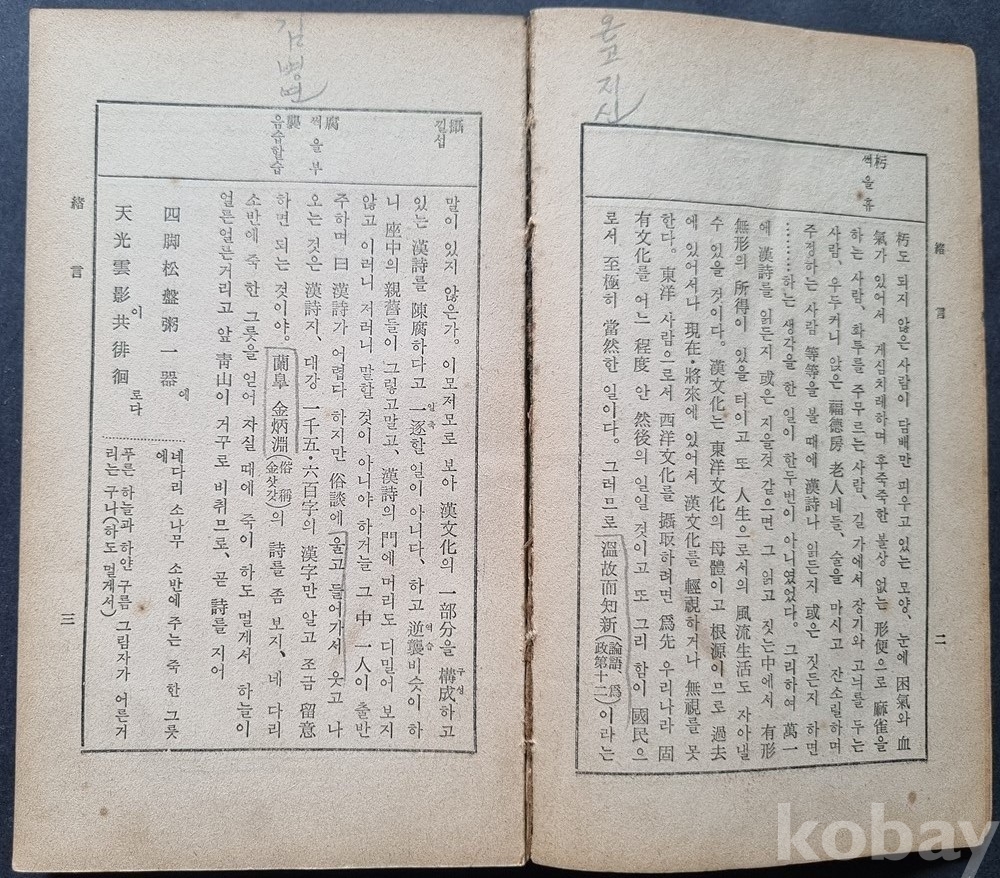 온고지신
朽 썩을 휴
緖言
二
朽도 되지 않은 사람이 담배만 피우고 있는 모양, 눈에 困氣와 血
氣가 있어서 게심치레하며 후죽죽한 불상 없는 形便으로 麻雀을
하는 사람, 화투를 주무르는 사람, 길 가에서 장기와 고늬를 두는
사람, 우두커니 앉은 福德房 老人네들, 술을 마시고 잔소릴하며
주정하는 사람 等等을 볼 때에 漢詩나 읽든지 或은 짓든지 하면
………하는 생각을 한 일이 한두번이 아니였었다. 그리하여 萬一
에 漢詩를 읽든지 或은 지을것 같으면 그 읽고 짓는中에서 有形
無形의 所得이 있을 터이고 또 人生으로서의 風流生活도 자아낼
수 있을 것이다. 漢文化는 東洋文化의 母體이고 根源이므로 過去
에 있어서나 現在·將來에 있어서 漢文化를 輕視하거나 無視를 못
한다. 東洋 사람으로서 西洋文化를 攝取하려면 爲先 우리나라 固
有文化를 어느 程度 안 然後의 일일 것이고 또 그리 함이 國民으
로서 至極히 當然한 일이다. 그러므로 溫故而知新(論語 爲政第十二)이라는
김병연
攝 낄섭
腐 썩을 부
襲 음습할습
緖言
三
말이 있지 않은가. 이모저모로 보아 漢文化의 一部分을 構成하고
구성
있는 漢詩를 陳腐하다고 一逐할 일이 아니다、하고 逆襲비슷이 하
일축 역습
니 座中의 親舊들이 그렇고말고、漢詩의 門에 머리도 디밀어 보지
않고 이러니 저러니 말할 것이 아니야 하거늘 그 中 一人이 출반
주하며 曰 漢詩가 어렵다 하지만 俗談에 울고 들어가서 웃고 나
오는 것은 漢詩지、대강 一千五·六百字의 漢字만 알고 조금 留意
하면 되는 것이야。蘭皐 金炳淵(俗稱 金삿갓)의 詩를 좀 보지、네 다리
소반에 죽 한 그릇을 얻어 자실 때에 죽이 하도 멀게서 하늘이
얼른얼른거리고 앞 靑山이 거꾸로 비취므로、곧 詩를 지어
四脚松盤粥一器에
네다리 소나무 소반에 주는 죽 한 그릇에
天光雲影이共徘徊로다
푸른 하늘과 하얀 구름 그림자가 어른거리는구나(하도 멀게서)
kobay